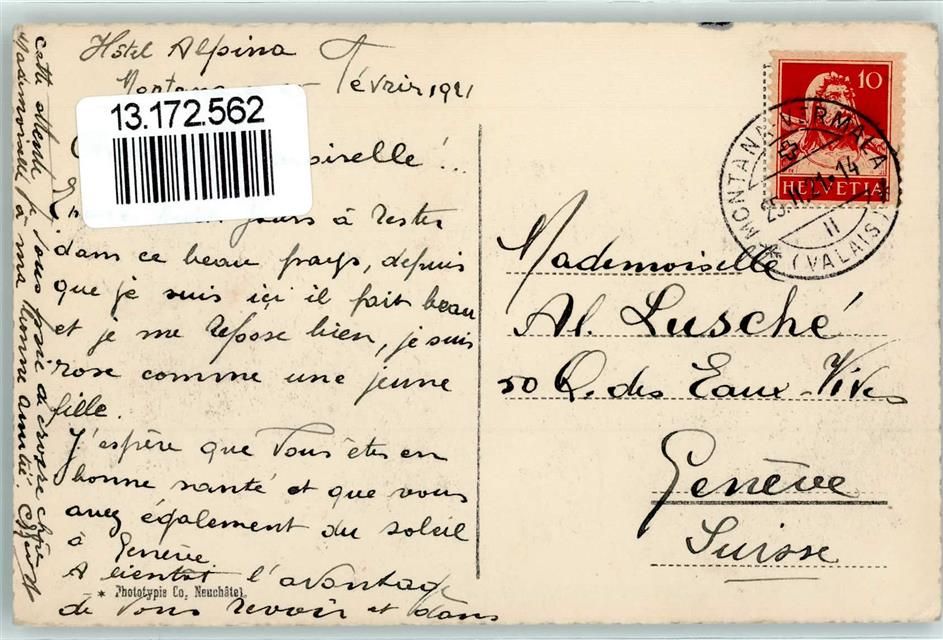 Hôtel Alpina
Février 1921
13.172.562
à rester
dans ce beau pays, depuis
que je suis içi il fait beau
et je me repose bien, je suis
rose comme une jeune
fille.
J'espère que vous êtes en
bonne santé et que vous
avez également du soleil
à Genève
A bientôt l'avantage
de vous revoir et dans
cette attente je vous prie de croire chère
Mademoiselle à ma bonne amitié.
* Phototypie Co. Neuchâtel
10
HELVETIA
MONTANA-VERMALA
25.II.21-14
II
* (VALAIS) *
Mademoiselle
Al. Lusché
50 Q. des Eaux-Vives
Genève
Suisse